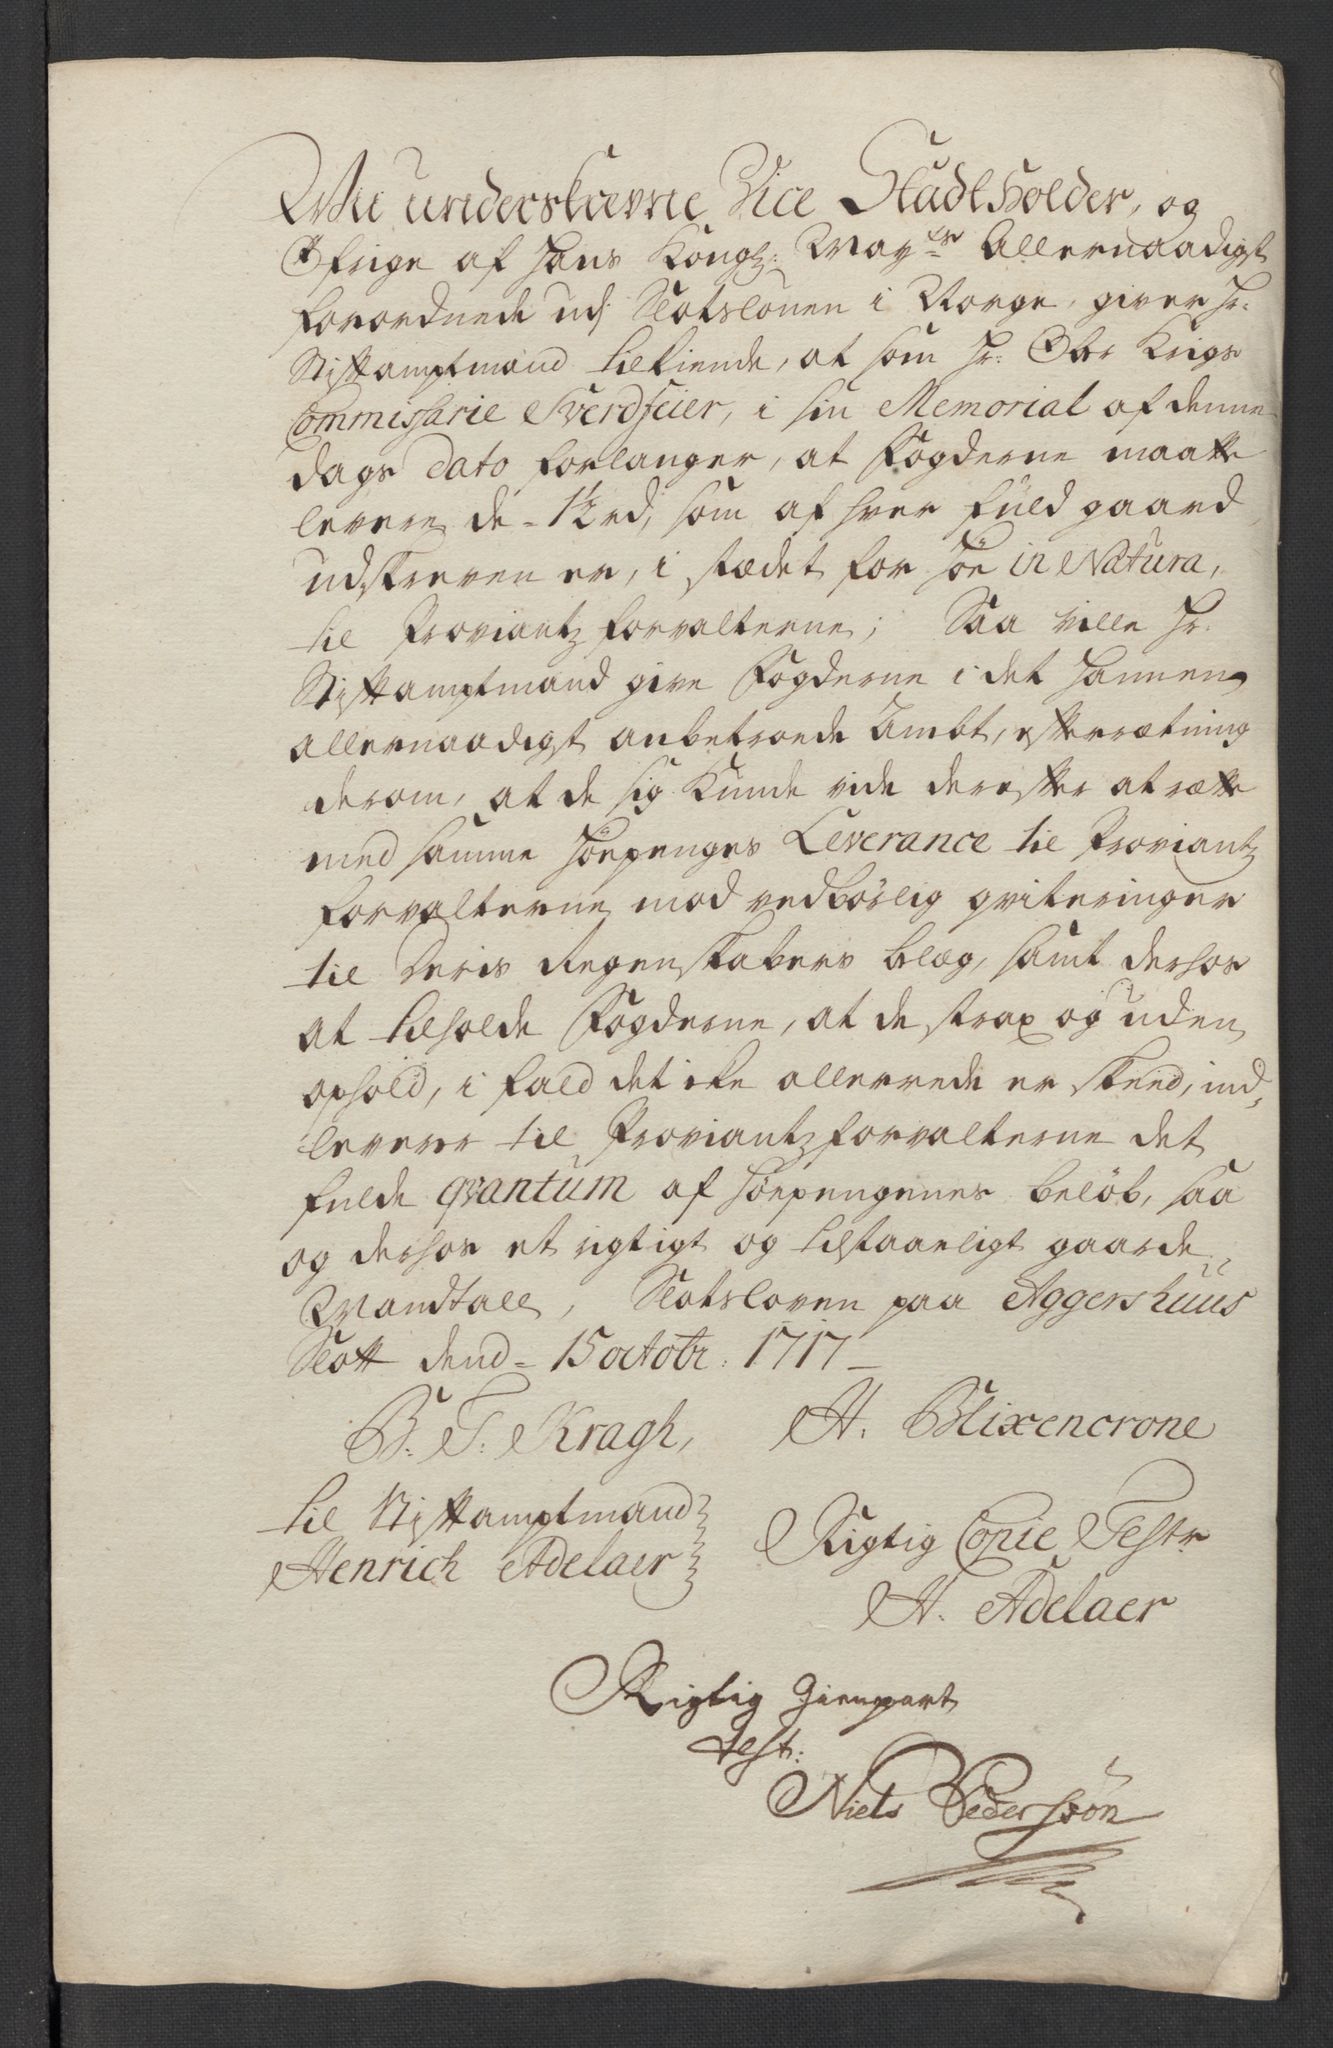 Wii underskrevne Vice Stadtholder, og
Øfrige af Hans Kongl: May:ts Allernaadigst
forordnede udj Slotslouen i Norge, giver Hr:
Stiftamptmand tilkiende, at som Hr: Ober Krigs
Commissarie Sverdfeier, i sin Memorial af denne
dags dato forlanger, at Fogderne maatte
levere de - 1½ rd, som af hver fuld gaard
udskreven er, i stædet for Höe in Natura,
til Proviantz forvalterne; Saa ville Hr:
Stiftamptmand give Fogderne i det hannem
allernaadigst anbetroede Ambt, efterrætning
derom, at de sig kunde vide derefter at rætte
med samme Höepenges Leverance til Proviantz
forvalterne mod vedbörlig qviteringer
til deris Regenskabers belæg, samt derhos
at tilholde Fogderne, at de strax og uden
ophold, i fald det iche allerrede er skeed, ind,
leverer til Proviantzforvalterne det
fulde qvantum af Höepengenes belöb, saa
og derhos et rigtigt og tilstaaeligt gaarde
Mandtall, Slotsloven paa Aggershuus
Slott dend - 15 octobr: 1717 -
B. F. Kragh, H. Blixencrone
til Stiftamptmand
Henrich Adelaer
Rigtig Copie Testr
H. Adelaer
Rigtig Gienpart
test:
Niels Pederssön